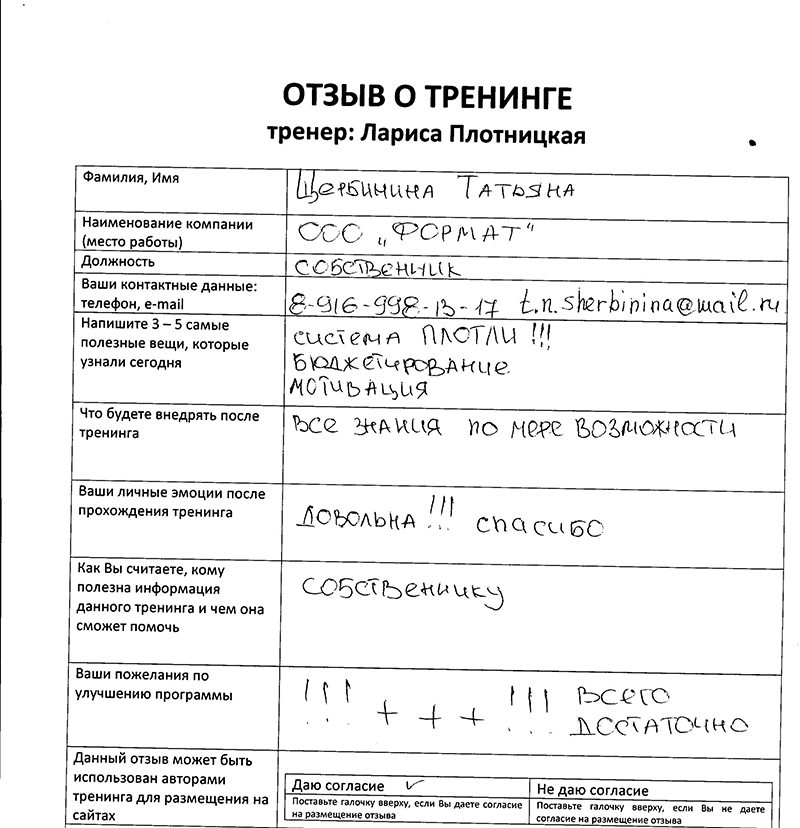 ОТЗЫВ О ТРЕНИНГЕ
тренер: Лариса Плотницкая
Фамилия, Имя
Щербинина Татьяна
Наименование компании
(место работы)
ООО „ФОРМАТ“
Должность
СОБСТВЕННИК
Ваши контактные данные:
телефон, e-mail
8-916-998-13-17 t.n.sherbinina@mail.ru
Напишите 3 – 5 самые
полезные вещи, которые
узнали сегодня
СИСТЕМА ПЛОТЛИ !!!
БЮДЖЕТИРОВАНИЕ
МОТИВАЦИЯ
Что будете внедрять после
тренинга
ВСЕ ЗНАНИЯ ПО МЕРЕ ВОЗМОЖНОСТИ
Ваши личные эмоции после
прохождения тренинга
ДОВОЛЬНА !!! СПАСИБО
Как Вы считаете, кому
полезна информация
данного тренинга и чем она
сможет помочь
СОБСТВЕННИКУ
Ваши пожелания по
улучшению программы
!!! + + + !!! ВСЕГО
ДОСТАТОЧНО
Данный отзыв может быть
использован авторами
тренинга для размещения на
сайтах
Даю согласие ✓
Поставьте галочку вверху, если Вы даете согласие
на размещение отзыва
Не даю согласие
Поставьте галочку вверху, если Вы не даете
согласие на размещение отзыва